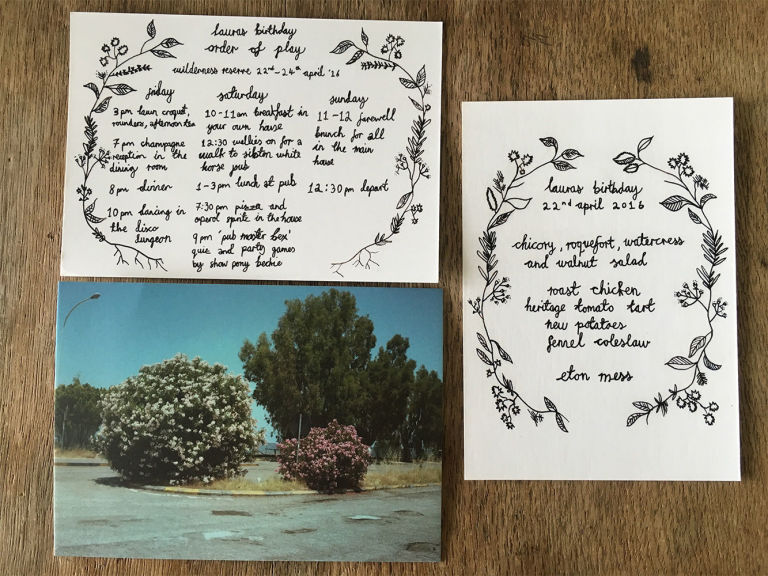 lauras birthday
order of play
wilderness reserve 22nd-24th april '16
friday
3pm lawn croquet,
rounders, afternoon tea
7pm champagne
reception in the
dining room
8pm dinner
10pm dancing in
the disco
dungeon
saturday
10-11am breakfast in
your own house
12:30 wellies on for a
walk to sibton white
horse pub
1-3pm lunch at pub
7:30pm pizza and
aperol spritz in the house
9pm 'pub master bex'
quiz and party games
by show pony beckie
sunday
11-12 farewell
brunch for all
in the main
house
12:30pm depart
lauras birthday
22nd april 2016
chicory, roquefort, watercress
and walnut salad
roast chicken
heritage tomato tart
new potatoes
fennel coleslaw
eton mess